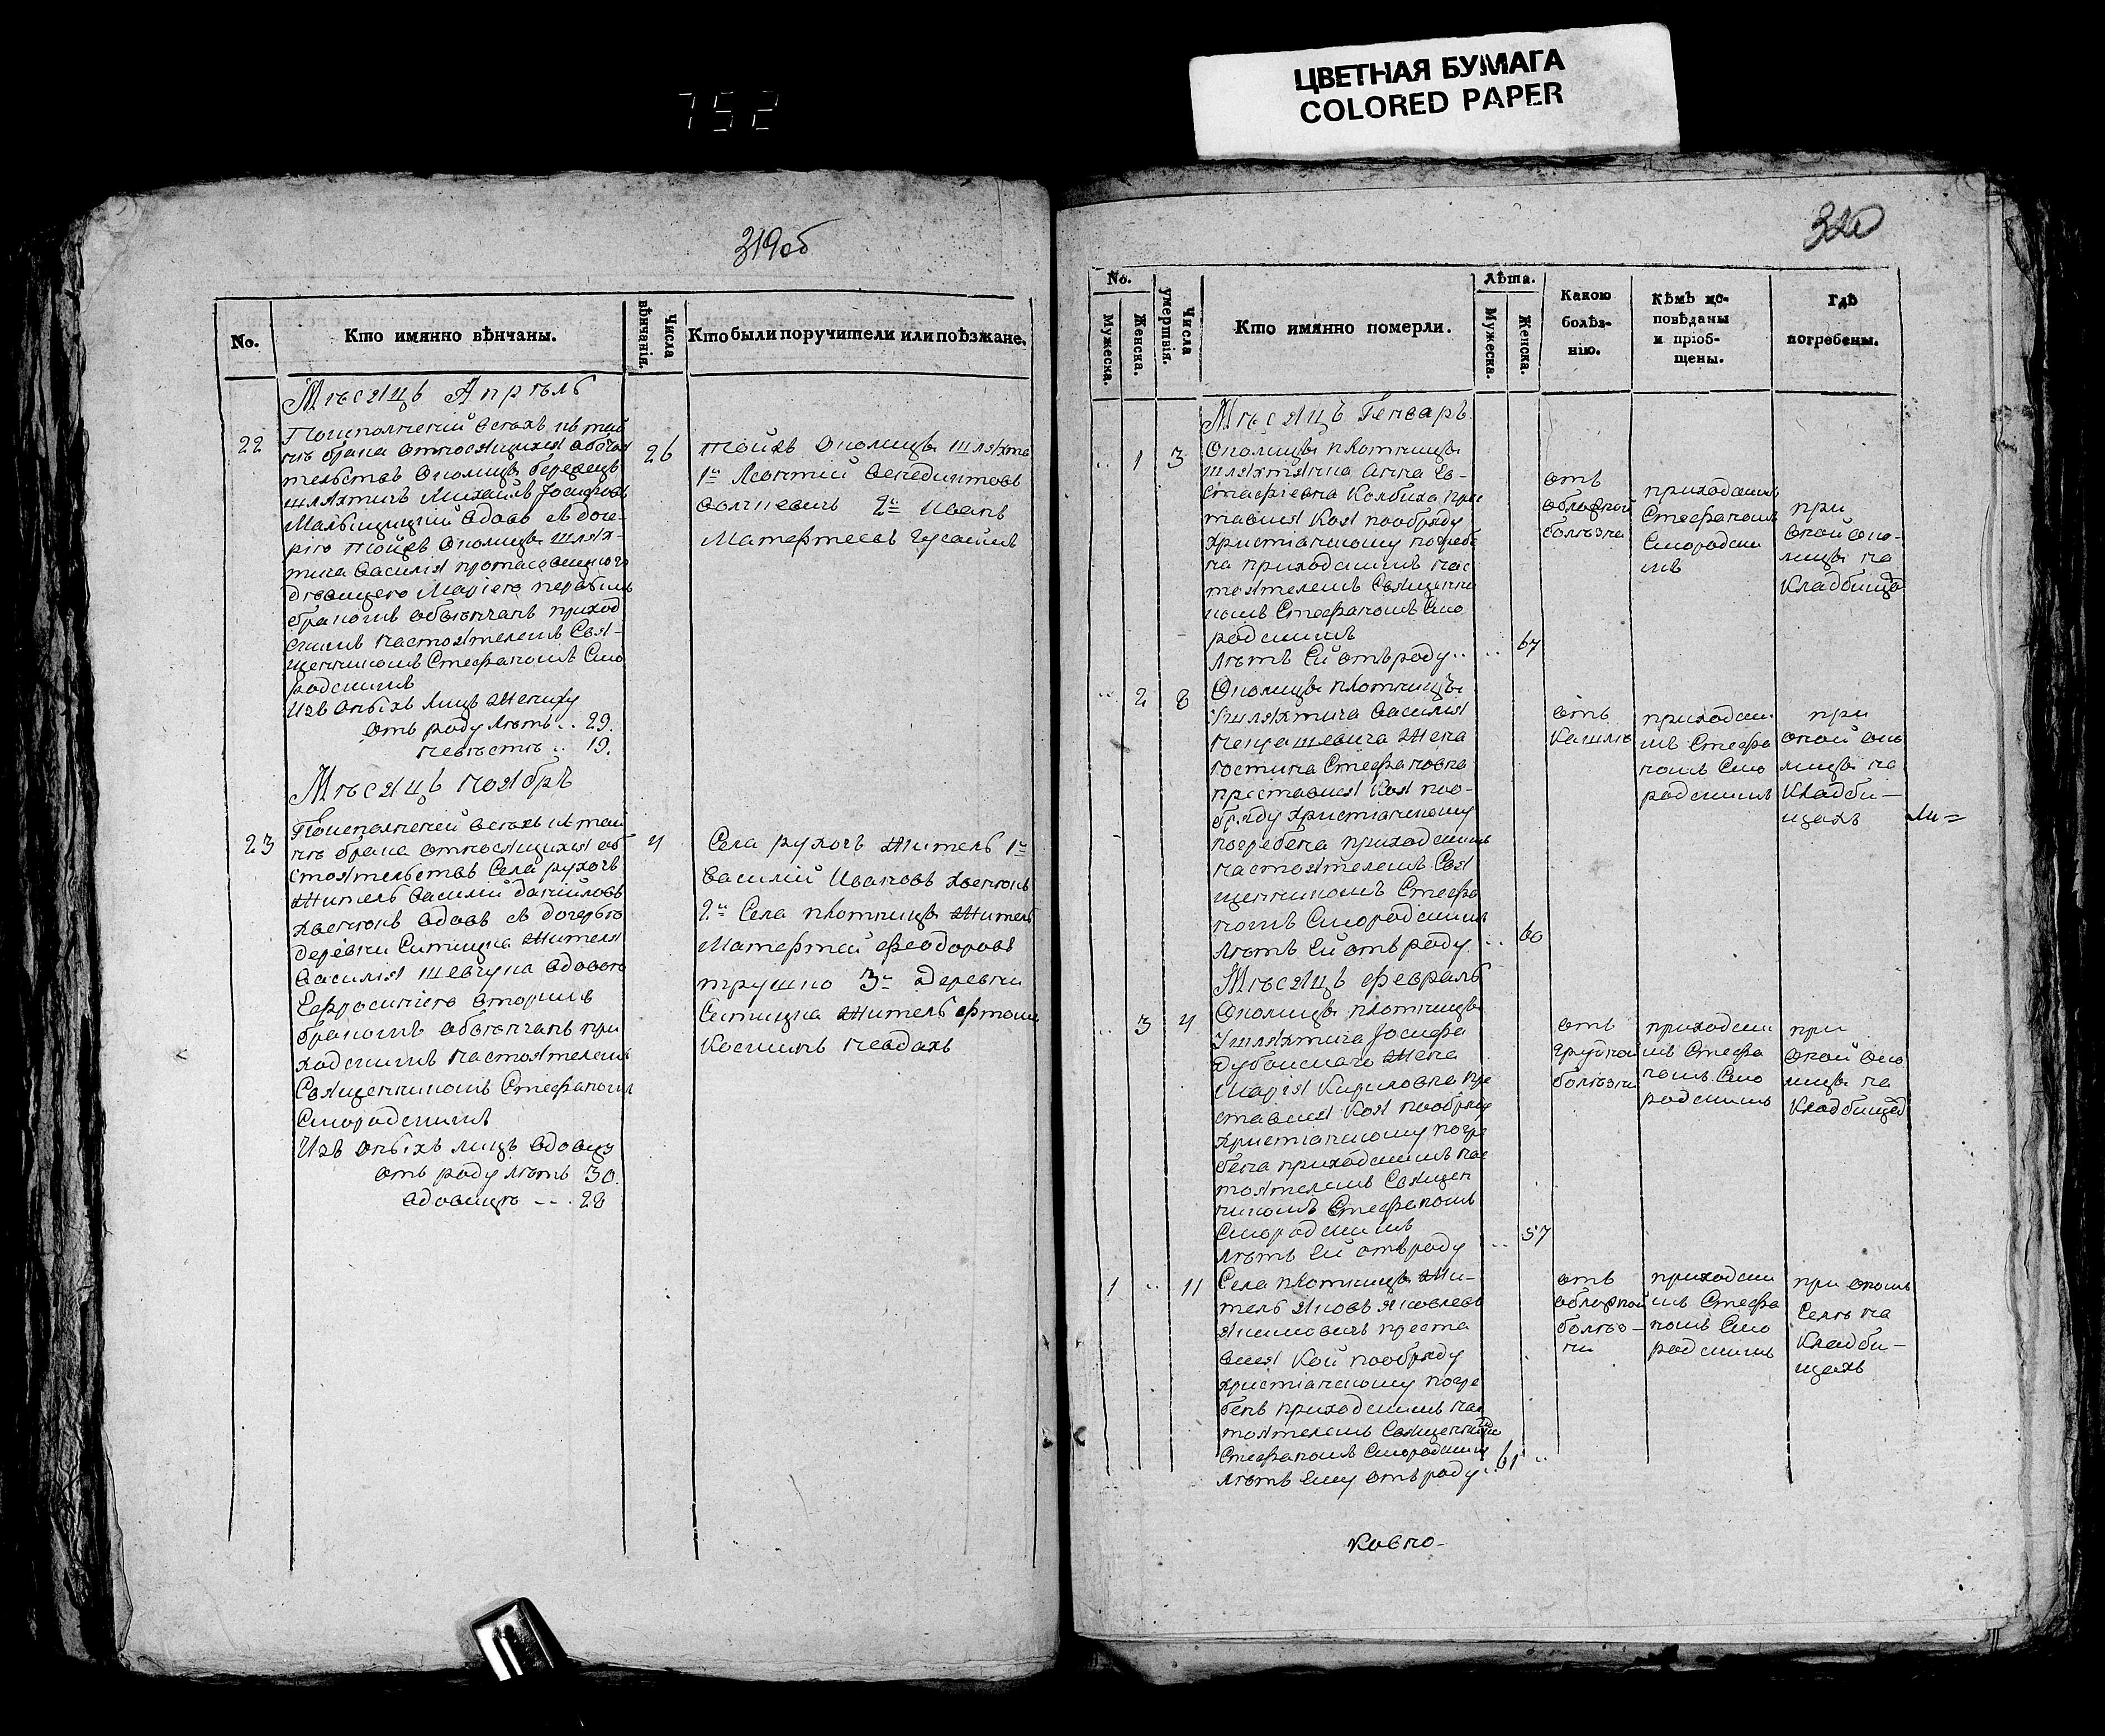 ЦВЕТНАЯ БУМАГА
COLORED PAPER
752
319об
No.
Кто имянно вѣнчаны.
Числа вѣнчанія.
Кто были поручители или поѣзжане.
Мѣсяцъ Апрѣль
22
Поисполненій всѣхъ къ тай
нѣ брака относящихся обстоя
тельствъ Околицы бережецъ
шляхтичъ Михаилъ Іосифовъ
вдовъ съ доче-
рію тойже Околицы шлях-
тича Василія
дѣвицею Маріею первымъ
бракомъ обвѣнчанъ приход
скимъ настоятелемъ Свя-
щенникомъ Стефаномъ Смо
родскимъ
Изъ оныхъ лицъ жениху
отъ роду лѣтъ .. 29.
невѣстѣ .. 19.
26
тойже Околицы шляхта
1й Леонтій
2й Иванъ
Мѣсяцъ ноябрь
23
Поисполненій всѣхъ къ тай
нѣ брака относящихся об
стоятельствъ Села рухочъ
житель Василій даніиловъ
хвенюкъ вдовъ съ дочерью
деревни Ситицка жителя
Василія шевчука вдовою
Ефросиніею вторымъ
бракомъ обвѣнчанъ при
ходскимъ настоятелемъ
Священникомъ Стефаномъ
Смородскимъ
Изъ оныхъ лицъ вдовцу
отъ роду лѣтъ 30.
вдовицѣ -- . 28
4
Села рухочъ житель 1й
Василій Ивановъ хвенюкъ
2й Села плотницы житель
Матефтей феодоровъ
трушко 3й деревни
Ситицка житель
320
No.
Мужеска.
Женска.
Числа умертвія.
Кто имянно померли.
Лѣта.
Мужеска.
Женска.
Какою
болѣз-
нію.
Кѣмъ ис-
повѣданы
и пріоб-
щены.
Гдѣ
погребены.
Мѣсяцъ Генварь
.. 1 3
Околицы плотницы
шляхтянка Анна Ев-
стафіевна Колбиха прес
тавися Коя пообряду
христіанскому погребе
на приходскимъ нас
тоятелемъ Священни
комъ Стефаномъ Смо
родскимъ
лѣтъ Ей отъ роду .. .. 67
отъ
обложной
болѣзни
приходскимъ
Стефаномъ
Смородски
мъ
при
оной око-
лицы на
Кладбищѣ
.. 2 8
Околицы плотницы
шляхтича Василія
жена
Іостина Стефановна
преставися Коя поо-
бряду христіанскому
погребена приходскимъ
настоятелемъ Свя
щенникомъ Стефа
номъ Смородскимъ
лѣтъ Ей отъ роду .. 60
отъ
Кашлю
приходски
мъ Стефа
номъ Смо
родскимъ
при
оной око
лицы на
Кладби-
щахъ
Мѣсяцъ февраль
.. 3 4
Околицы плотницы
шляхтича Іосифа
дубойскаго жена
Марія Кириловна пре
ставися Коя пообряду
христіанскому погре
бена приходскимъ нас
тоятелемъ Священ
никомъ Стефаномъ
Смородскимъ
лѣтъ Ей отъ роду .. 57
отъ
грудной
болѣзни
приходски
мъ Стефа
номъ Смо
родскимъ
при
оной око
лицы на
Кладбищѣ
1 .. 11
Села плотницы жи-
тель Яковъ Яковлевъ
преста
вися Кой пообряду
христіанскому погре
бенъ приходскимъ нас
тоятелемъ Священником
Стефаномъ Смородским
лѣтъ Ему отъ роду .. 61 ..
отъ
обложной
болѣз-
ни
приходски
мъ Стефа
номъ Смо
родскимъ
при ономъ
Селѣ на
Кладби-
щахъ